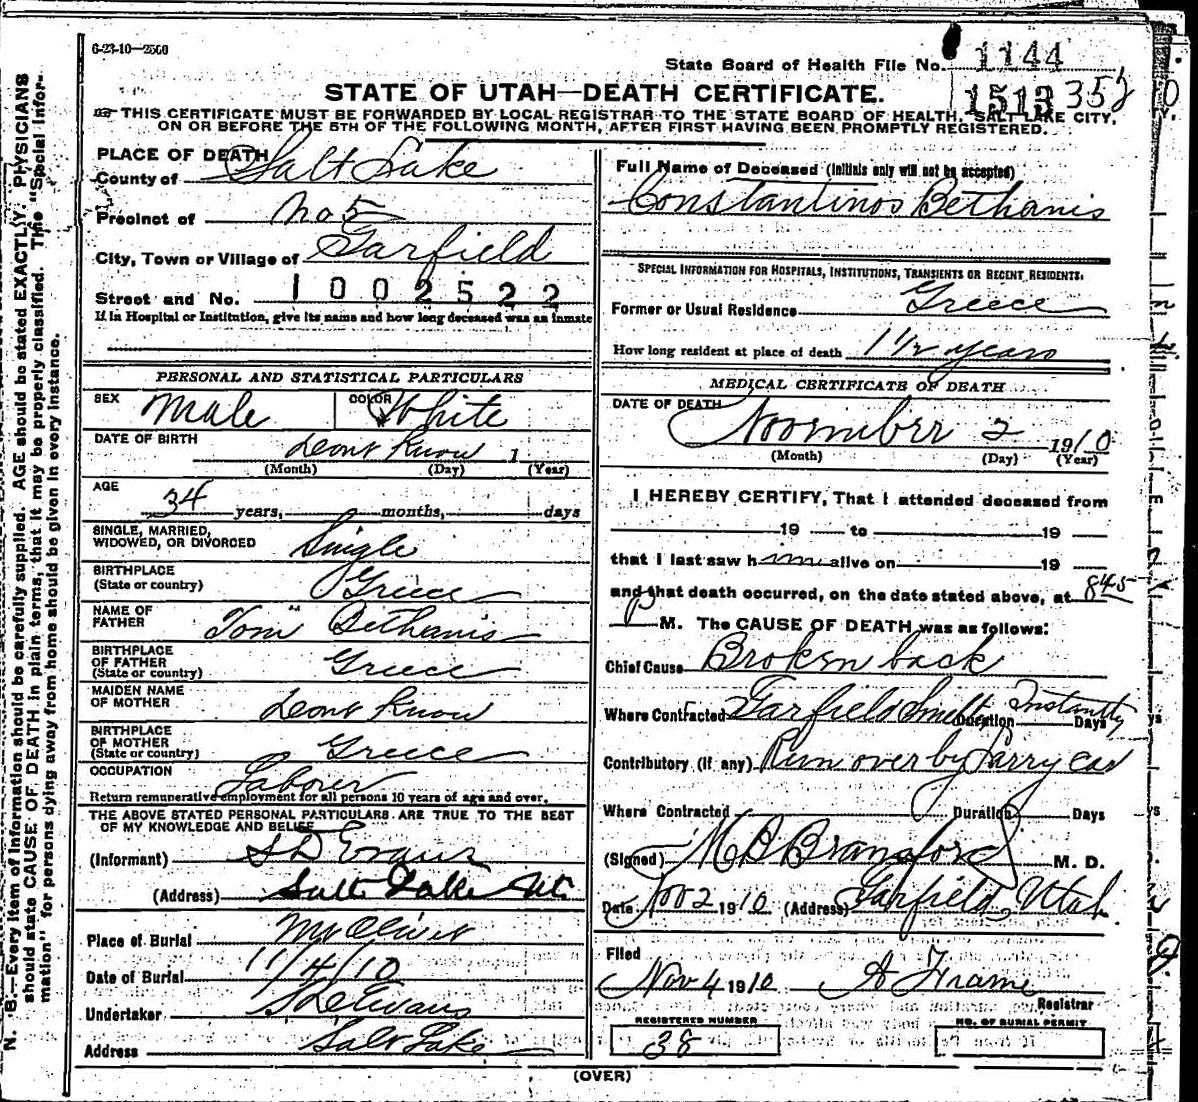 6-23-10—2500
State Board of Health File No. 1144
1513 352
STATE OF UTAH—DEATH CERTIFICATE.
THIS CERTIFICATE MUST BE FORWARDED BY LOCAL REGISTRAR TO THE STATE BOARD OF HEALTH, SALT LAKE CITY,
ON OR BEFORE THE 5TH OF THE FOLLOWING MONTH, AFTER FIRST HAVING BEEN PROMPTLY REGISTERED.
N. B.—Every item of information should be carefully supplied. AGE should be stated EXACTLY. PHYSICIANS
should state CAUSE OF DEATH in plain terms, that it may be properly classified. The "Special Infor-
mation" for persons dying away from home should be given in every instance.
PLACE OF DEATH
County of Salt Lake
Precinct of No 5
City, Town or Village of Garfield
Street and No. 1002522
If in Hospital or Institution, give its name and how long deceased was an inmate
PERSONAL AND STATISTICAL PARTICULARS
SEX Male COLOR White
DATE OF BIRTH Dont Know 1
(Month) (Day) (Year)
AGE
34 years, months, days
SINGLE, MARRIED,
WIDOWED, OR DIVORCED Single
BIRTHPLACE
(State or country) Greece
NAME OF
FATHER Tom Bethanis
BIRTHPLACE
OF FATHER
(State or country) Greece
MAIDEN NAME
OF MOTHER Dont Know
BIRTHPLACE
OF MOTHER
(State or country) Greece
OCCUPATION Laborer
Return remunerative employment for all persons 10 years of age and over.
THE ABOVE STATED PERSONAL PARTICULARS ARE TRUE TO THE BEST
OF MY KNOWLEDGE AND BELIEF
(Informant) S D Evans
(Address) Salt Lake Ut
Place of Burial Mt Olivet
Date of Burial 11/4/10
Undertaker S D Evans
Address Salt Lake
Full Name of Deceased (Initials only will not be accepted)
Constantinos Bethanis
SPECIAL INFORMATION FOR HOSPITALS, INSTITUTIONS, TRANSIENTS OR RECENT RESIDENTS.
Former or Usual Residence Greece
How long resident at place of death 1 1/2 years
MEDICAL CERTIFICATE OF DEATH
DATE OF DEATH
November 2 1910
(Month) (Day) (Year)
I HEREBY CERTIFY, That I attended deceased from
19 to 19
that I last saw him alive on 19
and that death occurred, on the date stated above, at 845
p M. The CAUSE OF DEATH was as follows:
Chief Cause Broken back
Where Contracted Garfield Smelt Duration Instantly Days
Contributory (if any) Run over by Larry car
Where Contracted Duration Days
(Signed) M D Bransford M. D.
Date Nov 2 1910 (Address) Garfield, Utah
Filed
Nov 4 1910 A Frame
Registrar
REGISTERED NUMBER
38
NO. OF BURIAL PERMIT
(OVER)